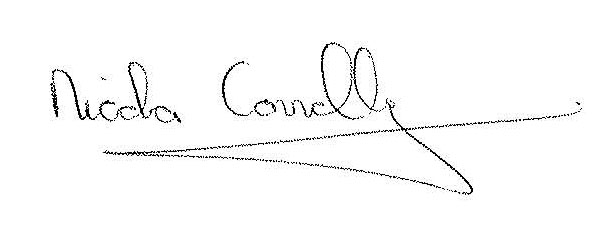 Nicola Connolly